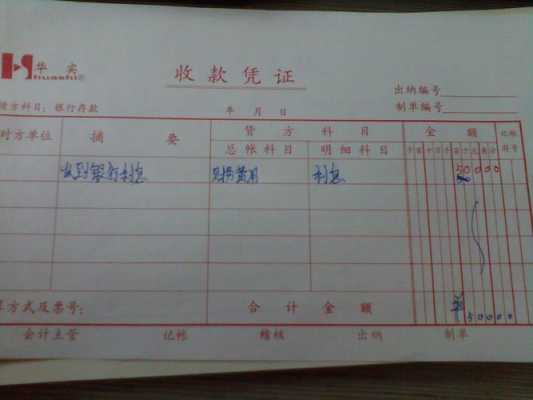 华实
huashi®
收款凭证
出纳编号
借方科目:银行存款 年 月 日 制单编号
对方单位 摘要 贷方科目 金额 记帐符号
总帐科目 明细科目 千百十万千百十元角分
收到银行利息 财务费用 利息 50000
算方式及票号: 合计金额 ¥50000
会计主管 记帐 稽核 出纳 制单